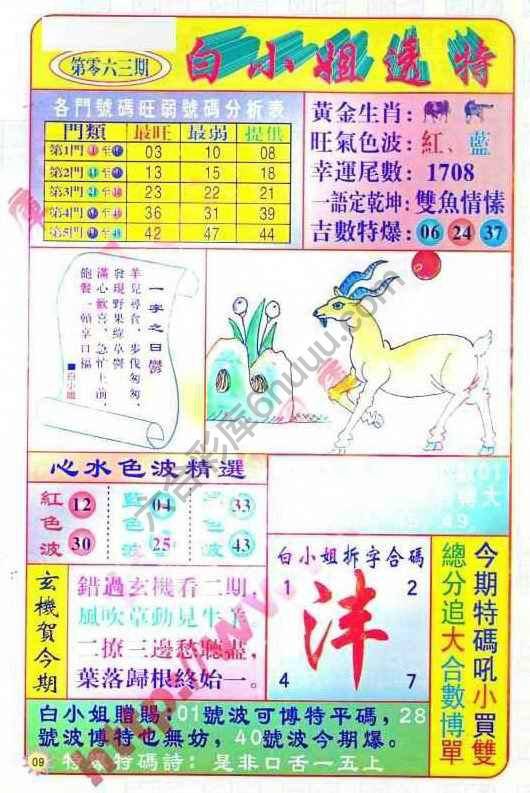 第零六三期
白小姐透特
各門號碼旺弱號碼分析表
門類 最旺 最弱 提供
第1門 03 10 08
第2門 13 15 18
第3門 23 22 21
第4門 36 31 39
第5門 42 47 44
黃金生肖:
旺氣色波:紅、藍
幸運尾數: 1708
一語定乾坤:雙魚情愫
吉數特爆: 06 24 37
一字之曰鬱
羊兒尋食,步伐匆匆,
發現野果綠草樹
滿心歡喜,急忙上前,
飽餐一頓享口福
■白小姐
心水色波精選
紅色波 12 30
藍色波 04 25
33 43
01
大
49
玄機賀今期
錯過玄機看二期,
風吹草動見牛羊
二撩三邊愁聽盡,
葉落歸根終始一。
白小姐拆字合碼
1 2
沣
4 7
今期特碼吼小買雙
總分追大合數博單
白小姐贈賜:01號波可博特平碼,28
號波博特也無妨,40號波今期爆。
特碼詩:是非口舌一五上
09
六合彩库6huuu.com